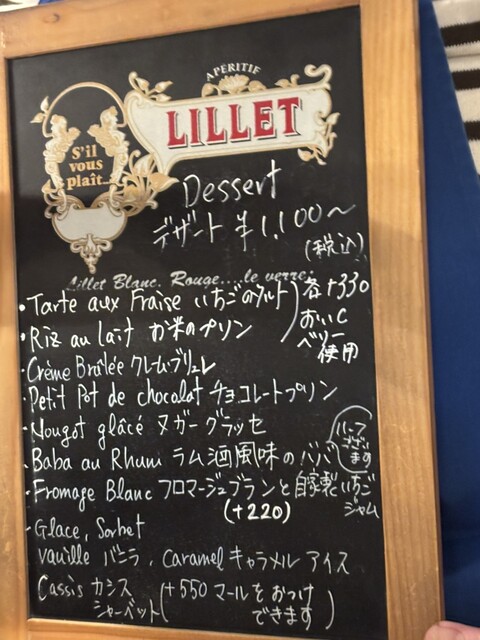 APERITIF
LILLET
S'il
vous
plaît...
Dessert
デザート ¥1,100〜
(税込)
Lillet Blanc, Rouge....le verre.
・Tarte aux Fraise いちごのタルト
・Riz au lait お米のプリン
各+330
おいCベリー
使用
・Crème Brûlée クレームブリュレ
・Petit Pot de chocolat チョコレートプリン
・Nougot glâcé ヌガーグラッセ
・Baba au Rhum ラム酒風味のババ
ハーフ
ござい
ます
・Fromage Blanc フロマージュブランと自家製いちご
ジャム
(+220)
・Glace, Sorbet
Vauille バニラ, Caramel キャラメル アイス
Cassis カシス
シャーベット
(+550 マールをおつけ
できます)